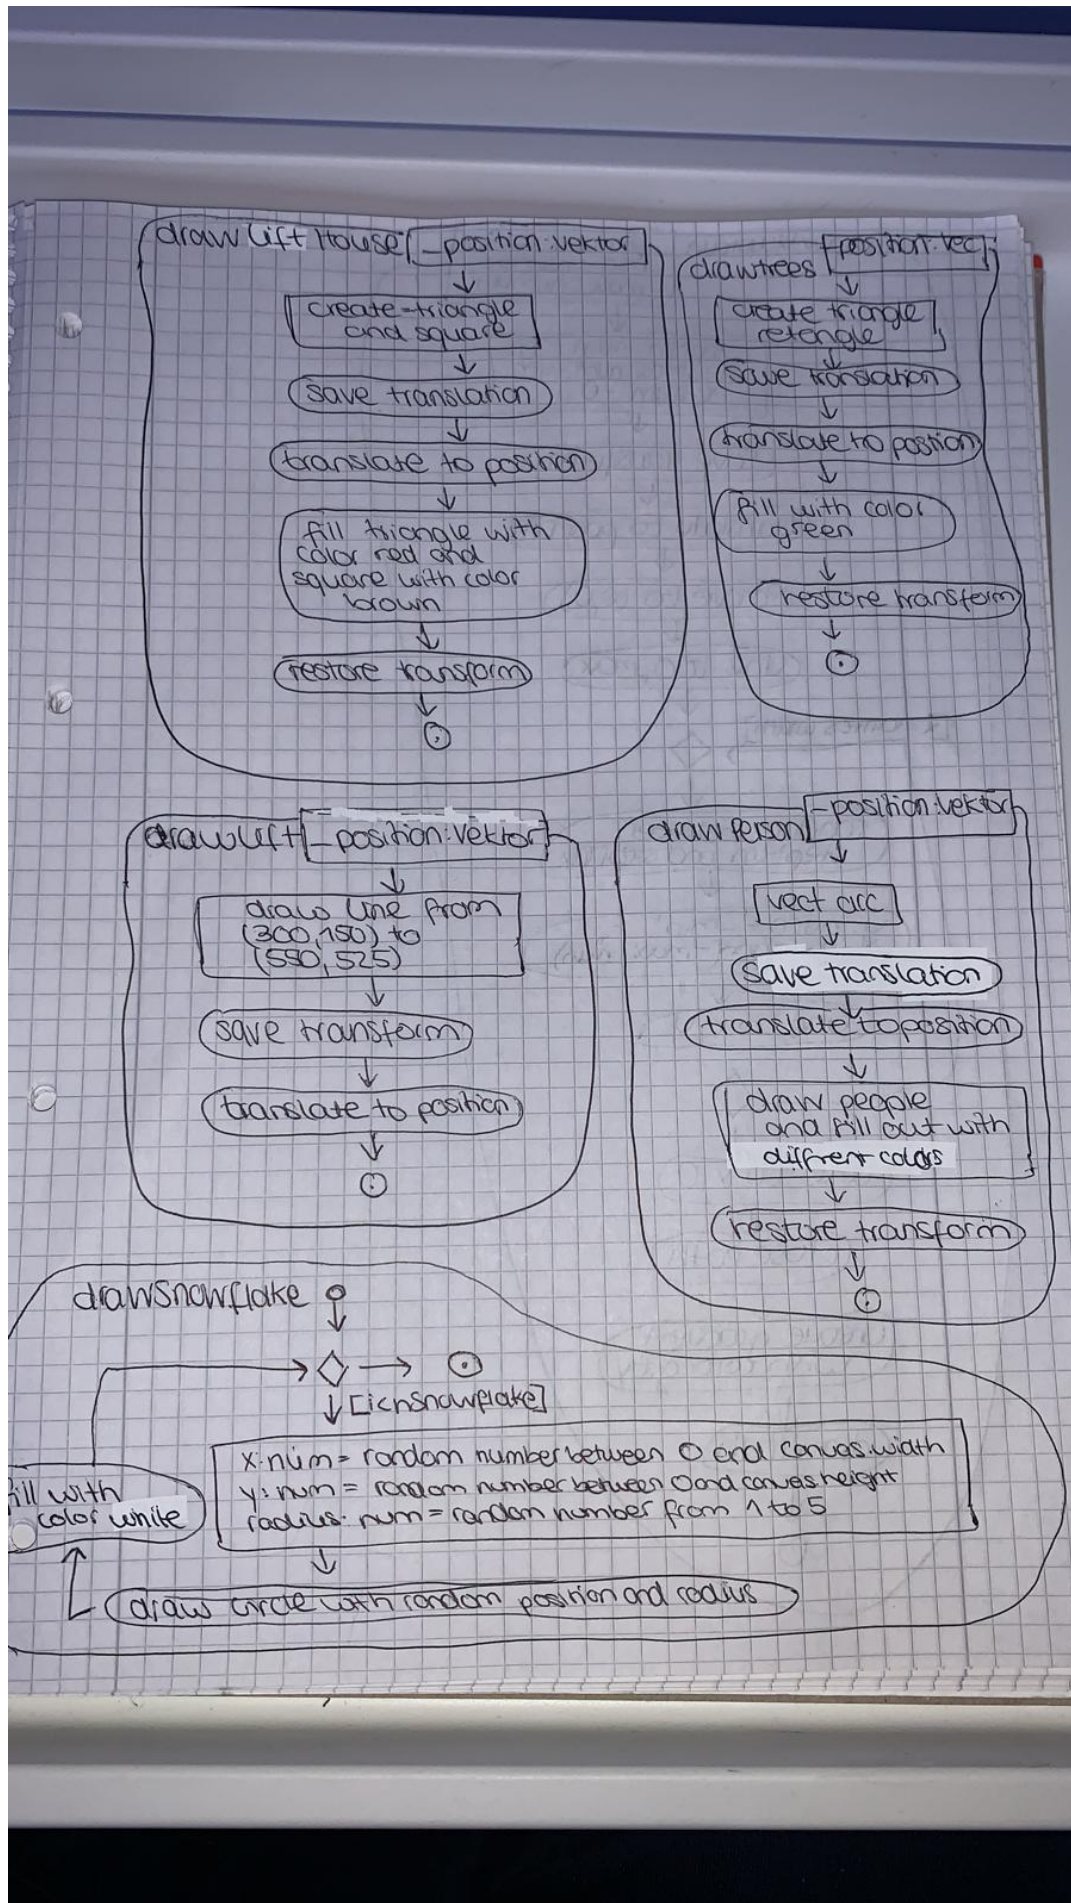 draw lift House
_position:vektor
create triangle
and square
save translation
translate to position
fill triangle with
color red and
square with color
brown
restore transform
drawtrees
position:vec
create triangle
retengle
save translation
translate to position
fill with color
green
restore transform
drawlift
_position:vektor
draw line from
(300,150) to
(550,525)
save transform
translate to position
draw Person
_position:vektor
vect arc
save translation
translate to position
draw people
and fill out with
diffrent colors
restore transform
drawSnowflake
[i<nSnowflake]
x:num = random number between 0 and canvas.width
y:num = random number between 0 and canvas height
radius: num = random number from 1 to 5
fill with
color white
draw circle with random position and radius